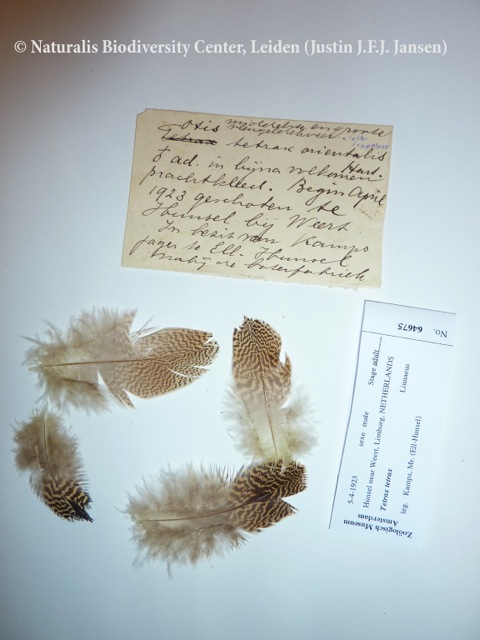 © Naturalis Biodiversity Center, Leiden (Justin J.F.J. Jansen)
middelste en groote
Otis vleugeldekveeren
tetrax tetrax orientalis
Hart.
♂ ad. in bijna volkomen
prachtkleed. Begin April
1923 geschoten te
Hunsel bij Weert
In bezit van Kamps
jager te Ell-Hunsel
nabij de boterfabriek
No. 64675
Zoölogisch Museum
Amsterdam
5-4-1923 sexe male Stage adult
Hunsel near Weert, Limburg, NETHERLANDS
Tetrax tetrax Linnaeus
leg. Kamps, Mr. (Ell-Hunsel)